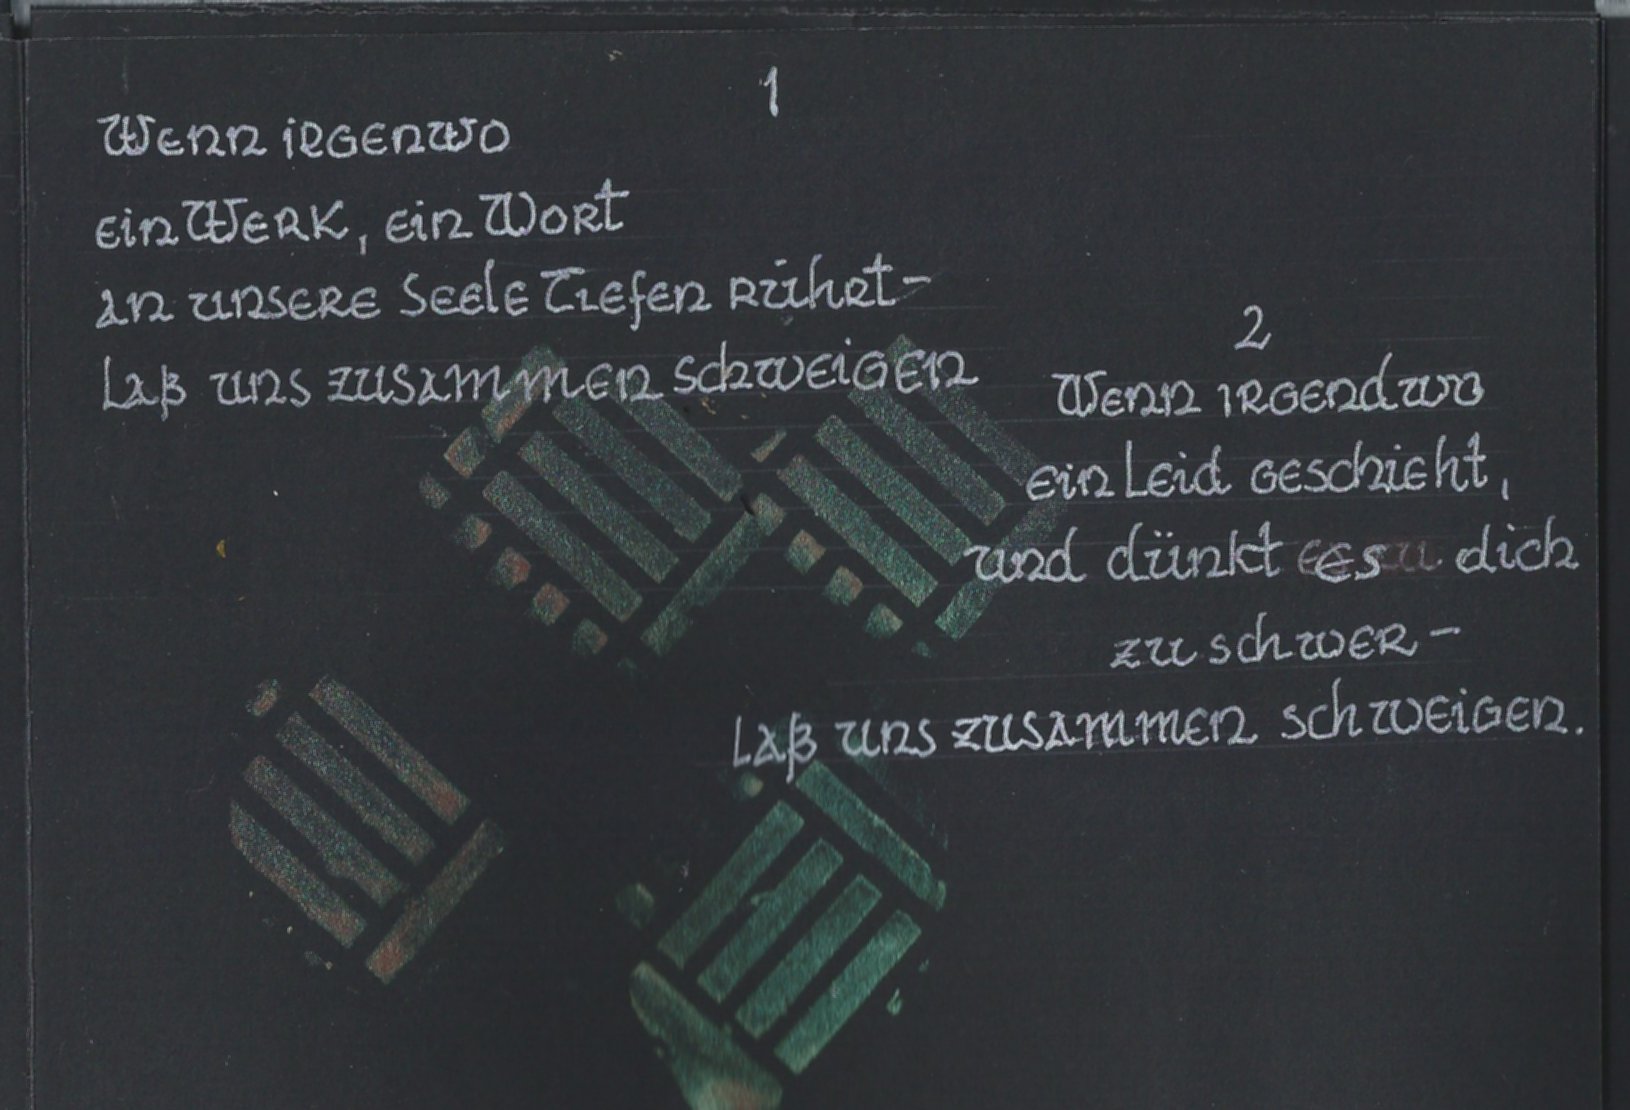 1
Wenn irgenwo
ein Werk, ein Wort
an unsere Seele Tiefen rührt-
Laß uns zusammen schweigen
2
Wenn irgendwo
ein Leid geschieht,
und dünkt es dich
zu schwer-
Laß uns zusammen schweigen.